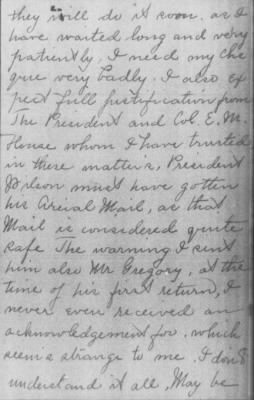 they will do it soon. as I
have waited long and very
patiently, I need my che
que very badly. I also ex
pect full justification from
The President and Col. E. M.
House whom I have trusted
in these matters, President
Wilson must have gotten
his Areial Mail, as that
Mail is considered quite
safe The warning I sent
him also Mr Gregory, at the
time of his first return, I
never even received an
acknowledgement for. which
seems strange to me. I don't
understand it all, May be